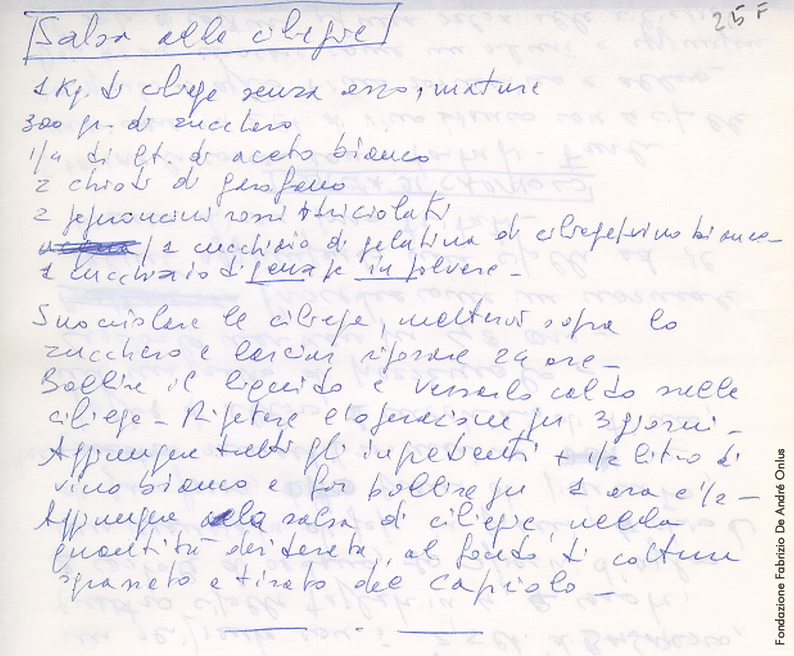 25 F
Salsa alle ciliegie
1 Kg. di ciliege senza osso, mature
300 gr. di zucchero
1/4 di lt. di aceto bianco
2 chiodi di garofano
2 peperoncini rossi striciolati
1 cucchiaio di gelatina di ciliege/vino bianco -
1 cucchiaio di senape in polvere -
Snocciolare le ciliege, mettervi sopra lo
zucchero e lasciar riposare 24 ore -
Bollire il liquido e versarlo caldo sulle
ciliege - Ripetere l'operazione per 3 giorni -
Aggiungere tutti gli ingredienti + 1/2 litro di
vino bianco e far bollire per 1 ora e 1/2 -
Aggiungere la salsa di ciliegie, nella
quantità desiderata, al fondo di cottura
sgrassato e tirato del capriolo -
Fondazione Fabrizio De André Onlus